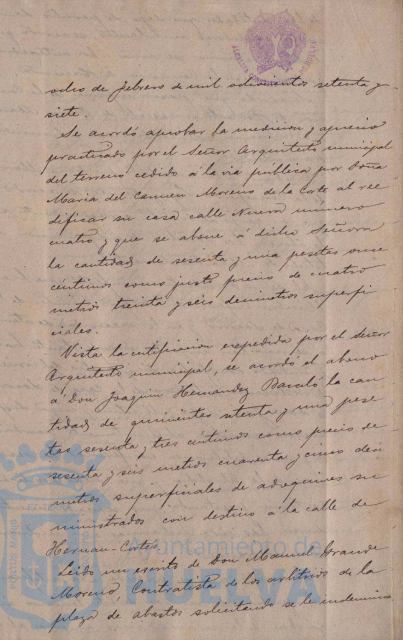 ocho de febrero de mil ochocientos setenta y
siete.
Se acordó aprobar la medicion y aprecio
practicado por el Señor Arquitecto municipal
del terreno cedido á la via pública por Doña
Maria del Carmen Moreno de la Corte al ree
dificar su casa calle Nueva número
cuatro y que se abone á dicha Señora
la cantidad de sesenta y una pesetas once
centimos como justo precio de cuatro
metros treinta y seis decimetros superfi
ciales.
Vista la certificacion expedida por el Señor
Arquitecto municipal, se acordó el abono
á Don Joaquin Hernandez Barceló la can
tidad de quinientas setenta y una pese
tas sesenta y tres centimos como precio de
sesenta y seis metros cuarenta y cinco deci
metros superficiales de adoquines su
ministrados con destino á la calle de
Hernan-Cortés
Leido un escrito de Don Manuel Grande
Moreno, Contratista de los arbitrios de la
plaza de abastos solicitando se le indemnice
Ayuntamiento de
HUELVA